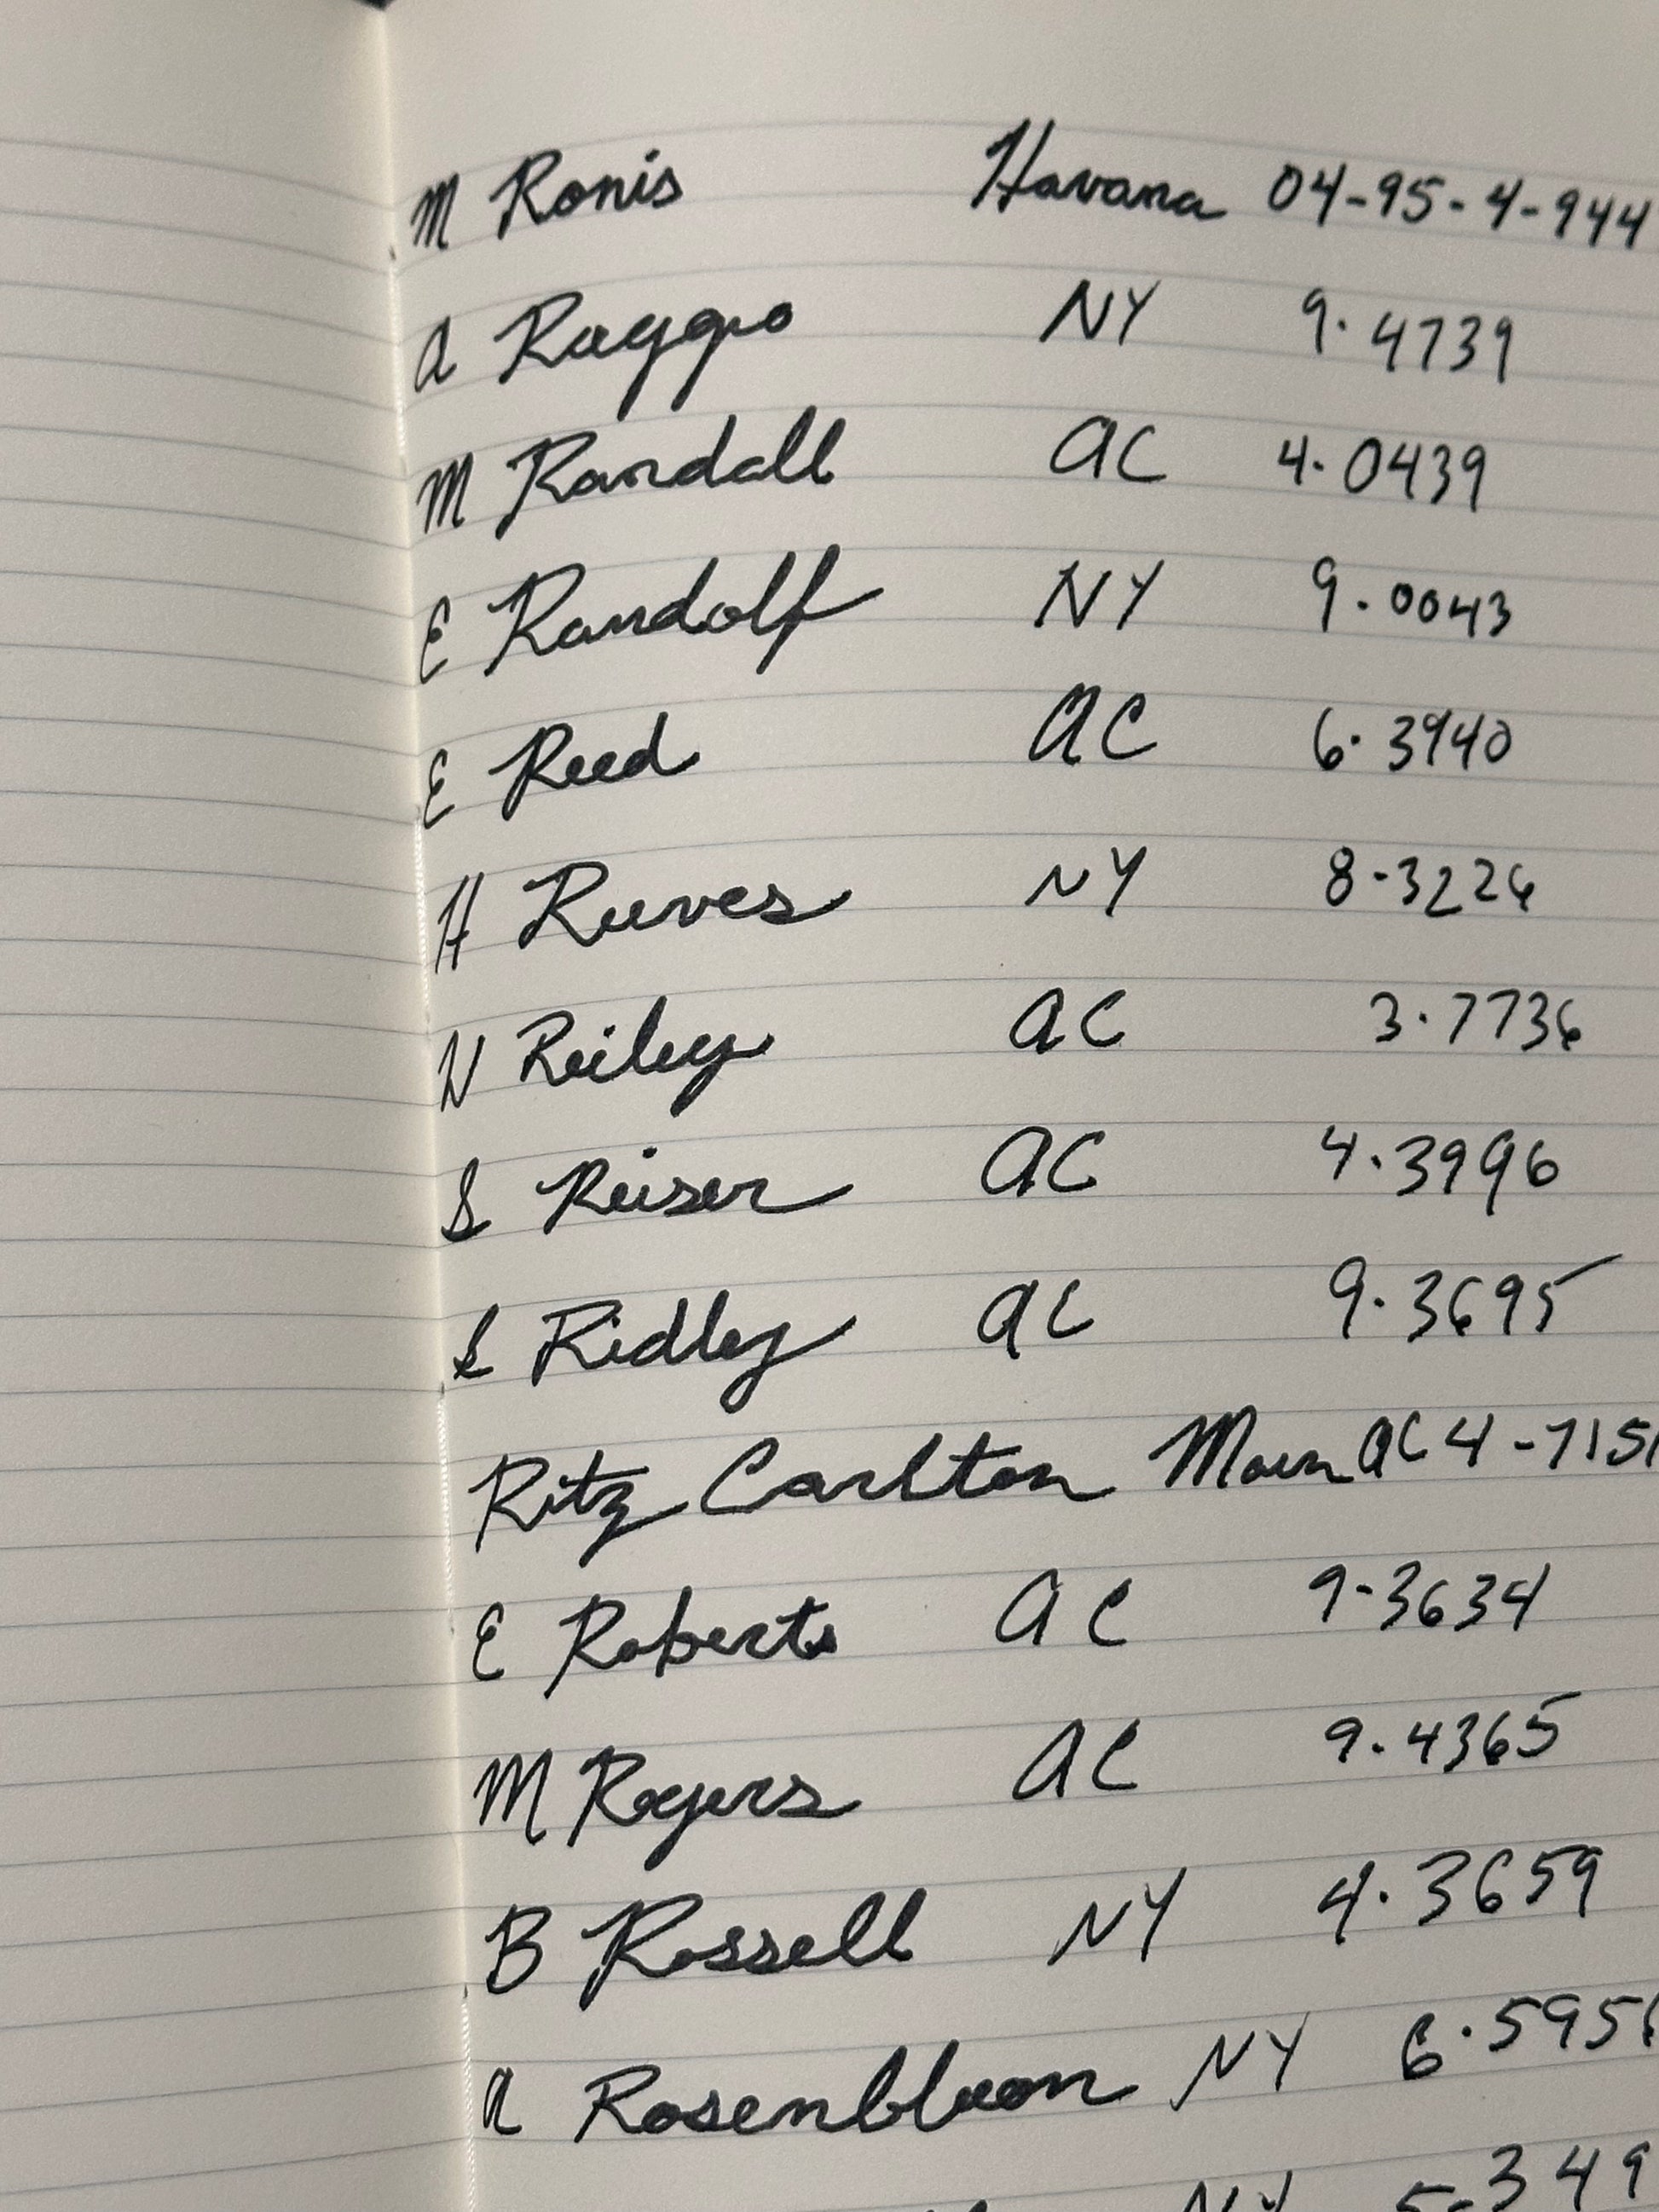 M Ronis Havana 04-95-4-944
A Raggio NY 9.4739
M Randall AC 4.0439
E Randolf NY 9.0043
E Reed AC 6.3940
H Reeves NY 8-3226
N Reiley AC 3.7736
S Reiser AC 4.3996
S Ridley AC 9.3695
Ritz Carlton Main AC 4-7151
E Roberts AC 9-3634
M Rogers AC 9.4365
B Rossell NY 4.3659
A Rosenbloom NY 6.595
NY 5-349